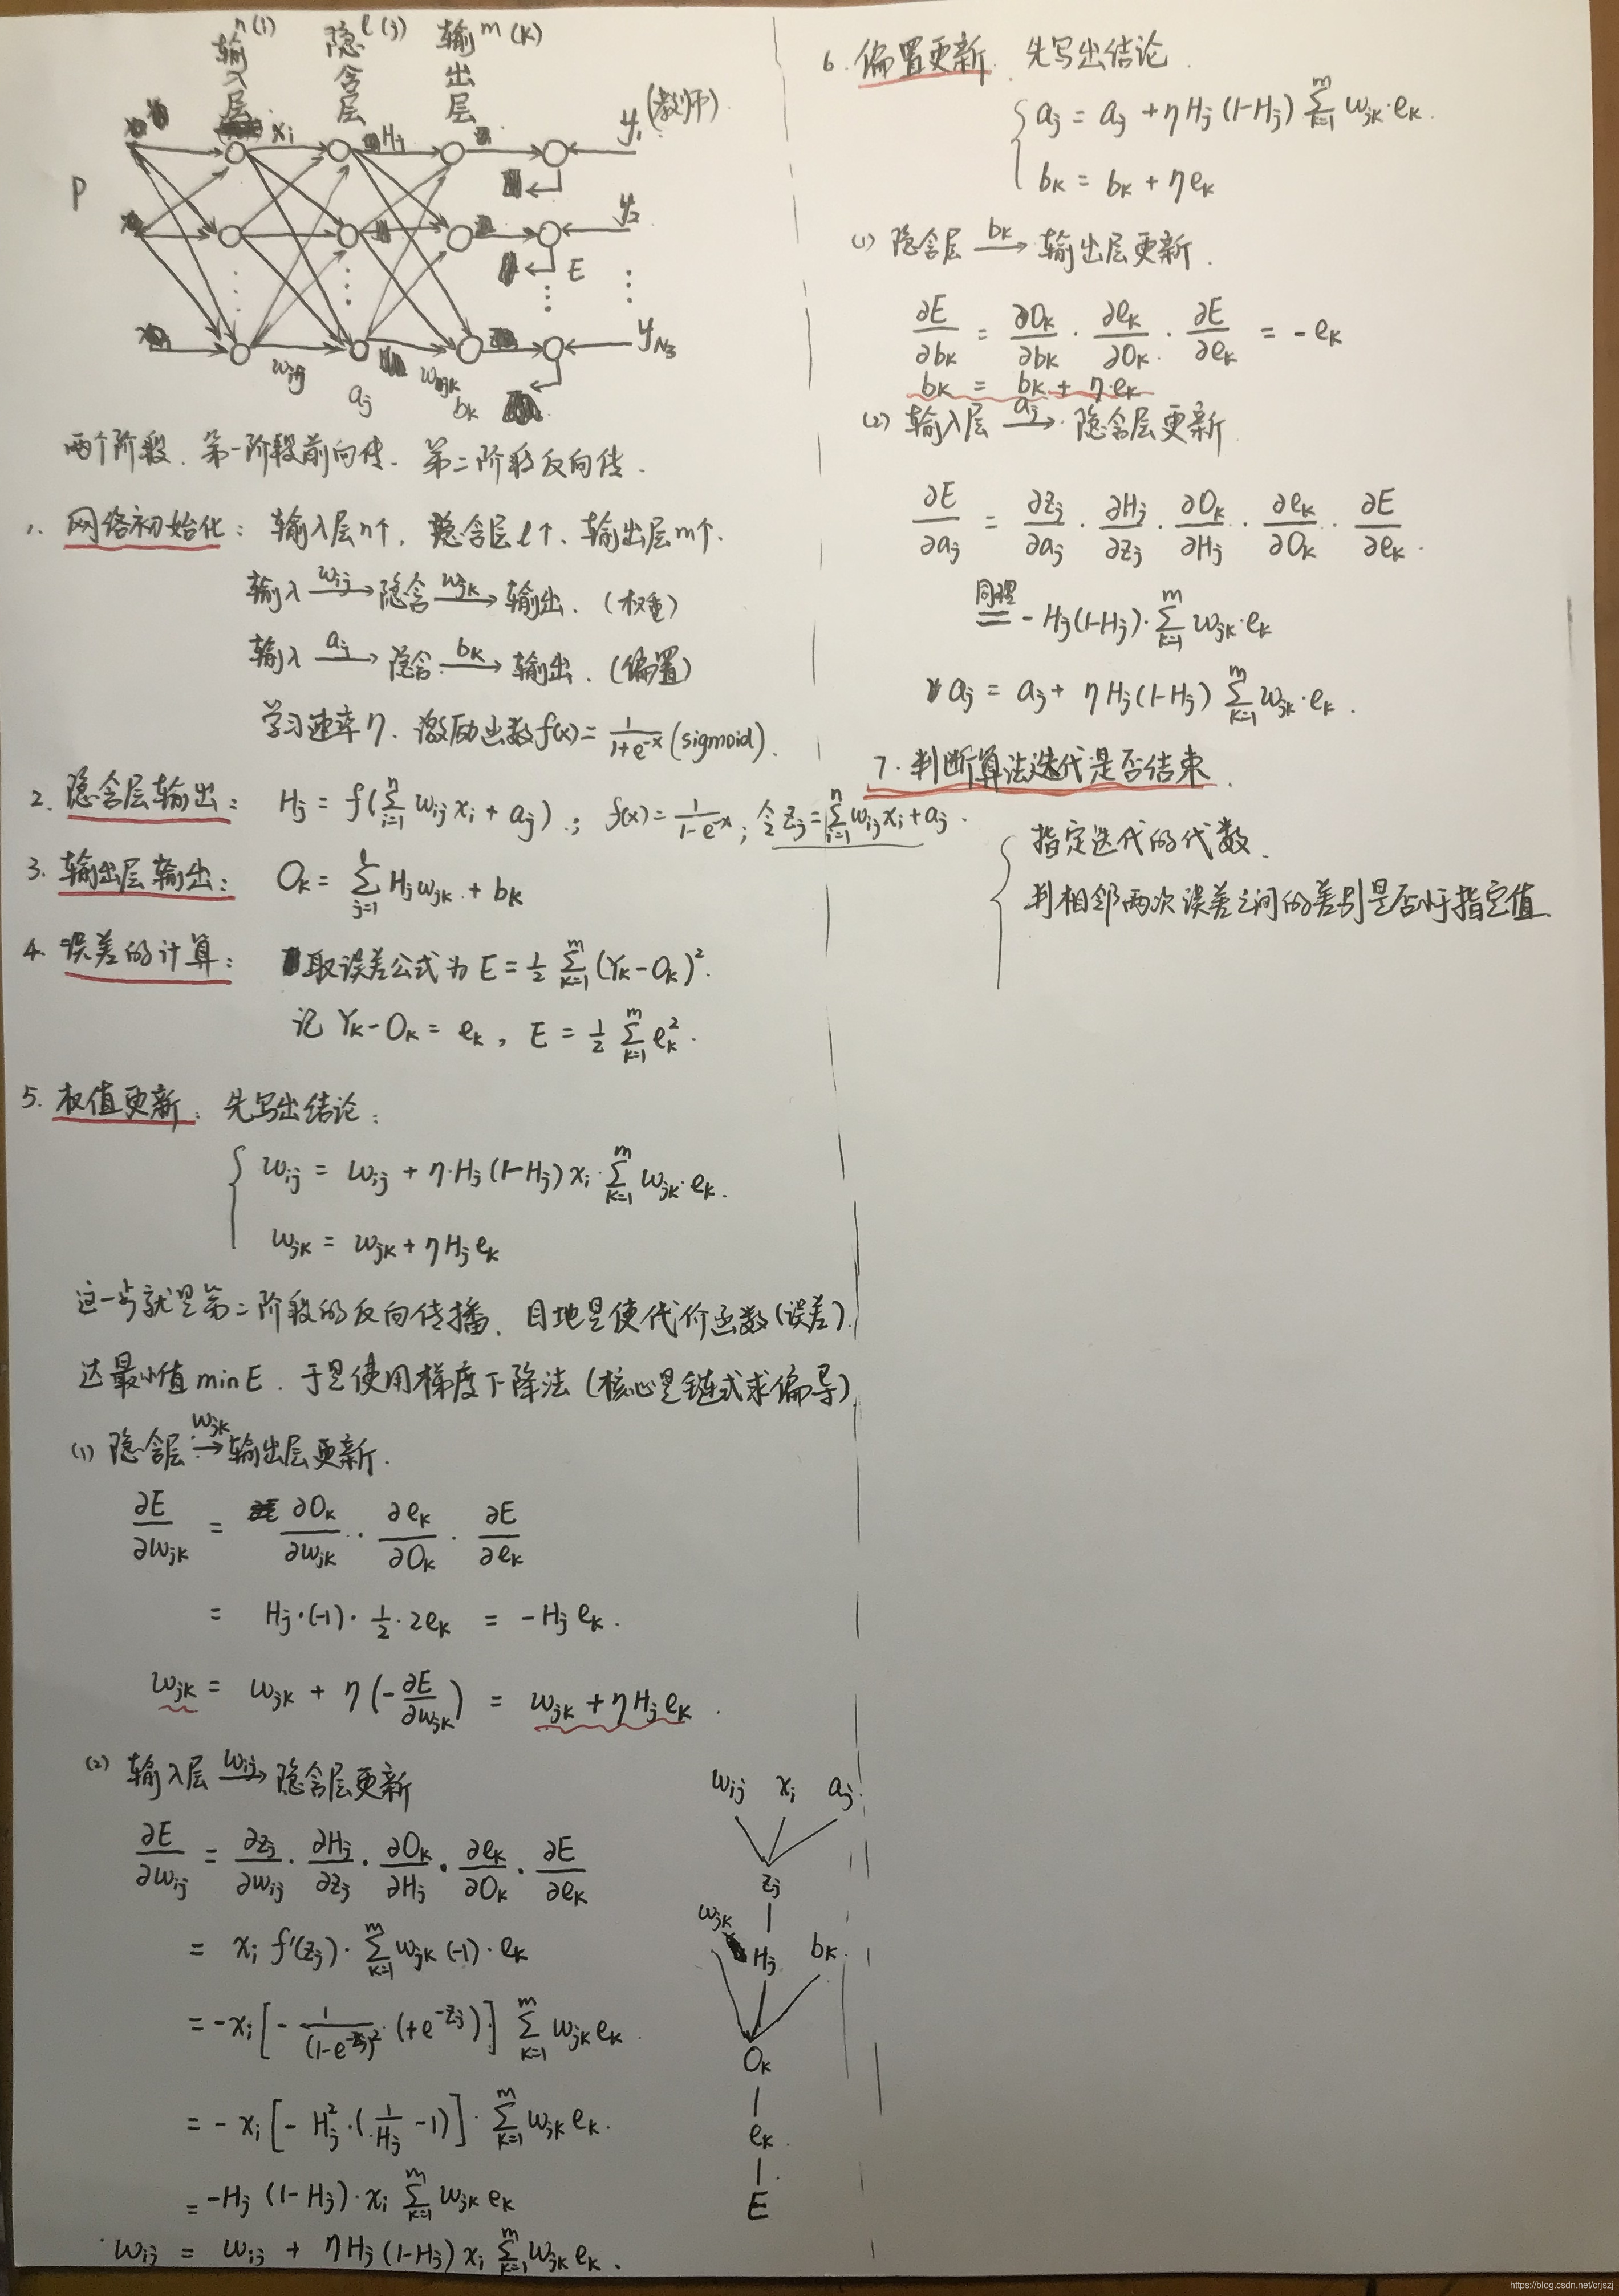 n(i) l(j) m(k)
输入层 隐含层 输出层
xi Hj y1 (教师)
P
y2
E
yN3
wij aj wjk bk
两个阶段. 第一阶段前向传. 第二阶段反向传.
1. 网络初始化: 输入层n个, 隐含层l个、输出层m个.
输入 wij→ 隐含 wjk→ 输出. (权重)
输入 aj→ 隐含 bk→ 输出. (偏置)
学习速率η. 激励函数f(x)=1/(1+e^-x) (sigmoid).
2. 隐含层输出: Hj = f(∑_{i=1}^{n} wij xi + aj); f(x)=1/(1-e^-x); 令zj=∑_{i=1}^{n} wij xi + aj.
3. 输出层输出: Ok = ∑_{j=1}^{l} Hj wjk + bk
4. 误差的计算: 取误差公式为 E = 1/2 ∑_{k=1}^{m} (Yk-Ok)^2.
记 Yk-Ok = ek, E = 1/2 ∑_{k=1}^{m} ek^2.
5. 权值更新: 先写出结论:
wij = wij + η·Hj(1-Hj)xi·∑_{k=1}^{m} wjk·ek.
wjk = wjk + ηHjek
这一步就是第二阶段的反向传播. 目地是使代价函数(误差)
达最小值minE. 于是使用梯度下降法(核心是链式求偏导)
(1) 隐含层 wjk→ 输出层更新.
∂E/∂wjk = ∂Ok/∂wjk · ∂ek/∂Ok · ∂E/∂ek
= Hj·(-1)·1/2·2ek = -Hjek.
wjk = wjk + η(-∂E/∂wjk) = wjk + ηHjek.
(2) 输入层 wij→ 隐含层更新
∂E/∂wij = ∂zj/∂wij · ∂Hj/∂zj · ∂Ok/∂Hj · ∂ek/∂Ok · ∂E/∂ek
= xi f'(zj)·∑_{k=1}^{m} wjk(-1)·ek
= -xi[-1/(1-e^-zj)^2·(+e^-zj)] ∑_{k=1}^{m} wjkek.
= -xi[-Hj^2·(1/Hj -1)]·∑_{k=1}^{m} wjkek.
= -Hj(1-Hj)·xi ∑_{k=1}^{m} wjkek
wij = wij + ηHj(1-Hj)xi ∑_{k=1}^{m} wjkek.
wij xi aj
zj
wjk Hj bk
Ok
ek
E
6. 偏置更新. 先写出结论.
aj = aj + ηHj(1-Hj) ∑_{k=1}^{m} wjk·ek.
bk = bk + ηek
(1) 隐含层 bk→ 输出层更新.
∂E/∂bk = ∂Ok/∂bk · ∂ek/∂Ok · ∂E/∂ek = -ek
bk = bk + η·ek
(2) 输入层 aj→ 隐含层更新
∂E/∂aj = ∂zj/∂aj · ∂Hj/∂zj · ∂Ok/∂Hj · ∂ek/∂Ok · ∂E/∂ek.
同理 = -Hj(1-Hj)·∑_{k=1}^{m} wjk·ek
aj = aj + ηHj(1-Hj) ∑_{k=1}^{m} wjk·ek.
7. 判断算法迭代是否结束.
指定迭代的代数.
判相邻两次误差之间的差别是否小于指定值.
https://blog.csdn.net/crjszj